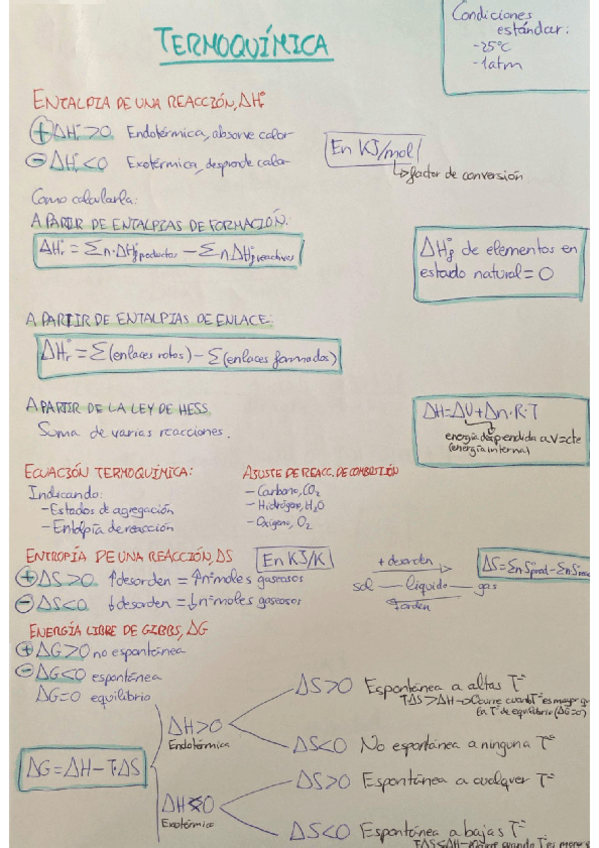 TERMOQUÍMICA
Condiciones
estándar:
-25°C
-1atm
ENTALPIA DE UNA REACCIÓN, ΔHr°
+ ΔHr°>0 Endotérmica, absorve calor
- ΔHr°<0 Exotérmica, desprende calor
En KJ/mol
↳factor de conversión
Como calcularla:
A PARTIR DE ENTALPIAS DE FORMACIÓN:
ΔHr° = Σn·ΔHf°productos - Σn ΔHf°reactivos
ΔHf° de elementos en
estado natural = 0
A PARTIR DE ENTALPIAS DE ENLACE:
ΔHr° = Σ(enlaces rotos) - Σ(enlaces formados)
A PARTIR DE LA LEY DE HESS
Suma de varias reacciones.
ΔH=ΔU+Δn·R·T
energía desprendida a V=cte
(energía interna)
ECUACIÓN TERMOQUÍMICA:
Indicando:
-Estados de agregación
-Entalpía de reacción
AJUSTE DE REACC. DE COMBUSTIÓN
-Carbono, CO₂
-Hidrógeno, H₂O
-Oxígeno, O₂
ENTROPÍA DE UNA REACCIÓN, ΔS
En KJ/K
+ ΔS>0 ↑desorden = ↑nºmoles gaseosos
- ΔS<0 ↓desorden = ↓nºmoles gaseosos
+ desorden
sol — líquido — gas
+ orden
ΔS=ΣnS°prod - ΣnS°reac
ENERGÍA LIBRE DE GIBBS, ΔG
+ ΔG>0 no espontánea
- ΔG<0 espontánea
ΔG=0 equilibrio
ΔG=ΔH-T·ΔS
ΔH>0
Endotérmica
ΔS>0 Espontánea a altas Tª
TΔS>ΔH→Ocurre cuando Tª es mayor q
la Tª de equilibrio (ΔG=0)
ΔS<0 No espontánea a ninguna Tª
ΔH<0
Exotérmica
ΔS>0 Espontánea a cualquier Tª
ΔS<0 Espontánea a bajas Tª
TΔS<ΔH→Ocurre cuando Tª es menor